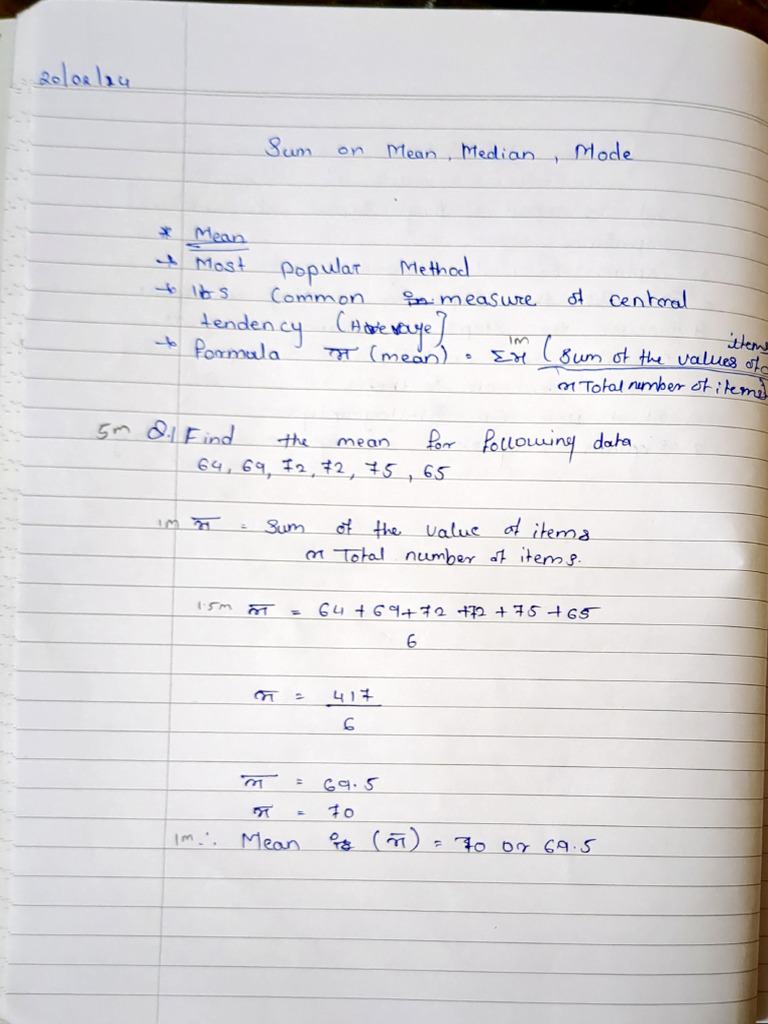 20/02/24
Sum on Mean, Median, Mode
* Mean
→ Most popular Method
→ Its Common measure of central
tendency (Average]
→ formula x̄ (mean) = Σx 1m (Sum of the values of items
n Total number of items)
5m Q.1 Find the mean for following data
64, 69, 72, 72, 75, 65
1m x̄ = Sum of the value of items
n Total number of items.
1.5m x̄ = 64 + 69 + 72 + 72 + 75 + 65
6
x̄ = 417
6
x̄ = 69.5
x̄ = 70
1m ∴ Mean is (x̄) = 70 or 69.5